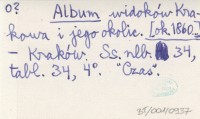 0?
Album widoków Kra-
kowa i jego okolic. [ok. 1860.]
- Kraków. Ss. nlb. 34,
tabl. 34, 4°. "Czas".